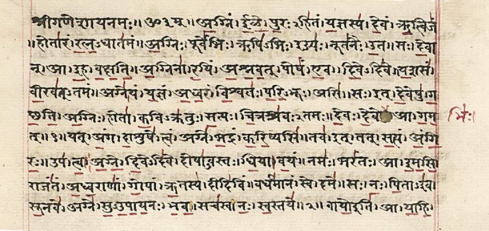 श्रीगणेशायनमः॥ॐ३म्॥अग्निं।ईळे।पुरःऽहितं।यज्ञस्य।देवं।ऋत्विजं
।होतारं।रत्नऽधातमं।अग्निः।पूर्वेभिः।ऋषिऽभिः।ईड्यः।नूतनैः।उत।सः।देवा
न्।आ।इह।वक्षति।अग्निना।रयिं।अश्नवत्।पोषं।एव।दिवेऽदिवे।यशसं
वीरवत्ऽतमं।अग्ने।यं।यज्ञं।अध्वरं।विश्वतः।परिऽभूः।असि।सः।इत्।देवेषु।ग
च्छति।अग्निः।होता।कविऽक्रतुः।सत्यः।चित्रश्रवःऽतमः।देवः।देवे।आ।गम
भिः।
त्॥१॥यत्।अंग।दाशुषे।त्वं।अग्ने।भद्रं।करिष्यसि।तव।इत्।तत्।सत्यं।अंगि
रः।उप।त्वा।अग्ने।दिवेऽदिवे।दोषाऽवस्तः।धिया।वयं।नमः।भरंतः।आ।इमसि
राजंतं।अध्वराणां।गोपां।ऋतस्य।दीदिविं।वर्धमानं।स्वे।दमे।सः।नः।पिताऽइव
सूनवे।अग्ने।सुऽउपायनः।भव।सचस्व।नः।स्वस्तये॥२॥वायोइति।आ।याहि।